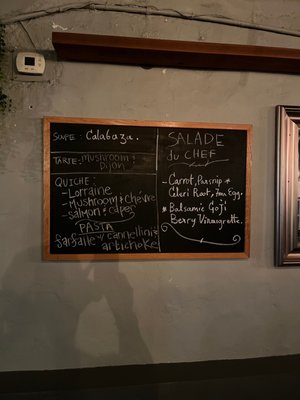 SOUPE: Calabaza.
TARTE: Mushroom &
Dijon
QUICHE:
-Lorraine
-Mushroom & chèvre
-salmon & capes
PASTA
farfalle w/ cannellini &
artichoke
SALADE
du CHEF
-Carrot, Parsnip *
Celeri Root, Egg.
* Balsamic Goji
Berry Vinaigrette.